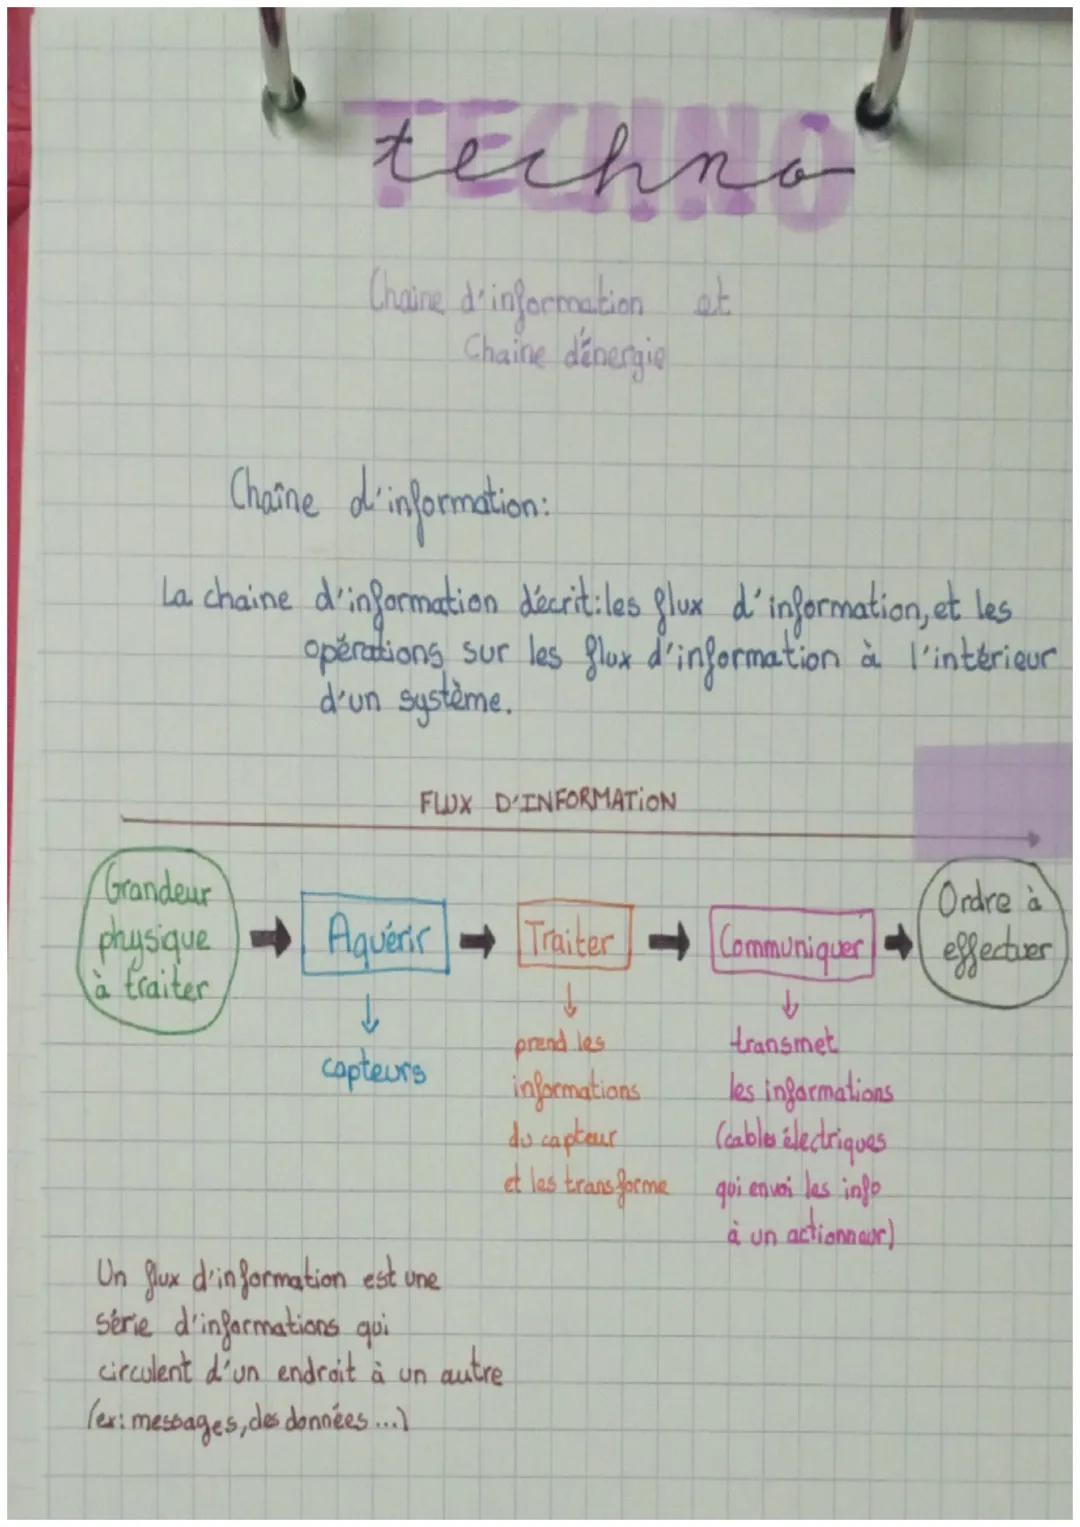 TECHNO
techno
Chaine d'information et
Chaine d'énergie
Chaîne d'information:
La chaine d'information décrit:les flux d'information, et les
opérations sur les flux d'information à l'intérieur
d'un système.
FLUX D'INFORMATION
Grandeur
physique
à traiter
Aquérir
Traiter
Communiquer
Ordre à
effectuer
capteurs
prend les
informations
du capteur
et les transforme
transmet
les informations
(cables électriques
qui envoi les info
à un actionneur)
Un flux d'information est une
série d'informations qui
circulent d'un endroit à un autre
(ex: messages, des données...)